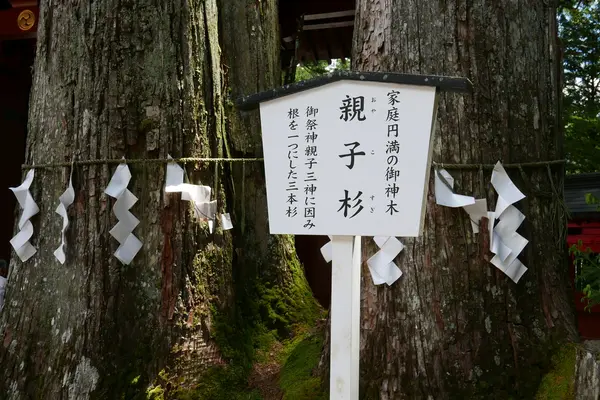 家庭円満の御神木
親子杉
おやこすぎ
御祭神親子三神に因み
根を一つにした三本杉